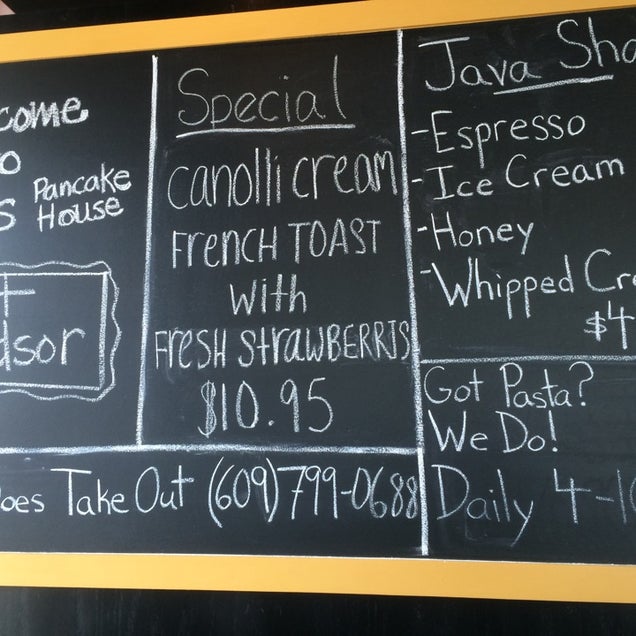 come
o
s Pancake
House
dsor
Special
canolli cream
FRENCH TOAST
with
FRESH STRAWBERRIS
$10.95
Java Sha
-Espresso
-Ice Cream
-Honey
-Whipped Cre
$4
Got Pasta?
We Do!
Daily 4-10
oes Take Out (609)799-0688